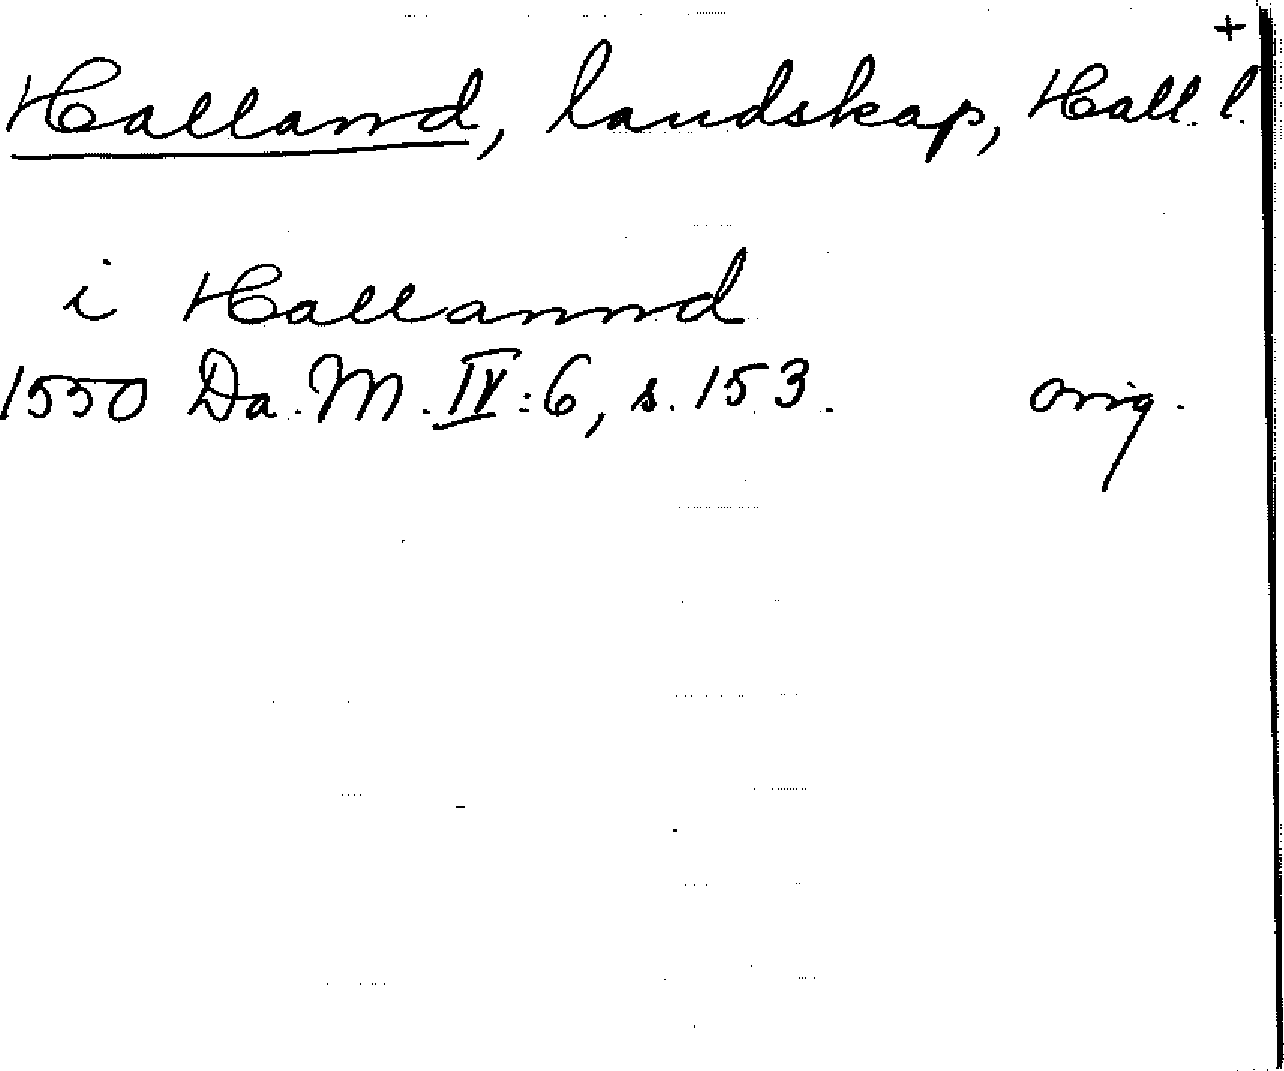 +
Halland, landskap, Hall. l.
i Hallannd
1550 Da. M. IV:6, s. 153. orig.